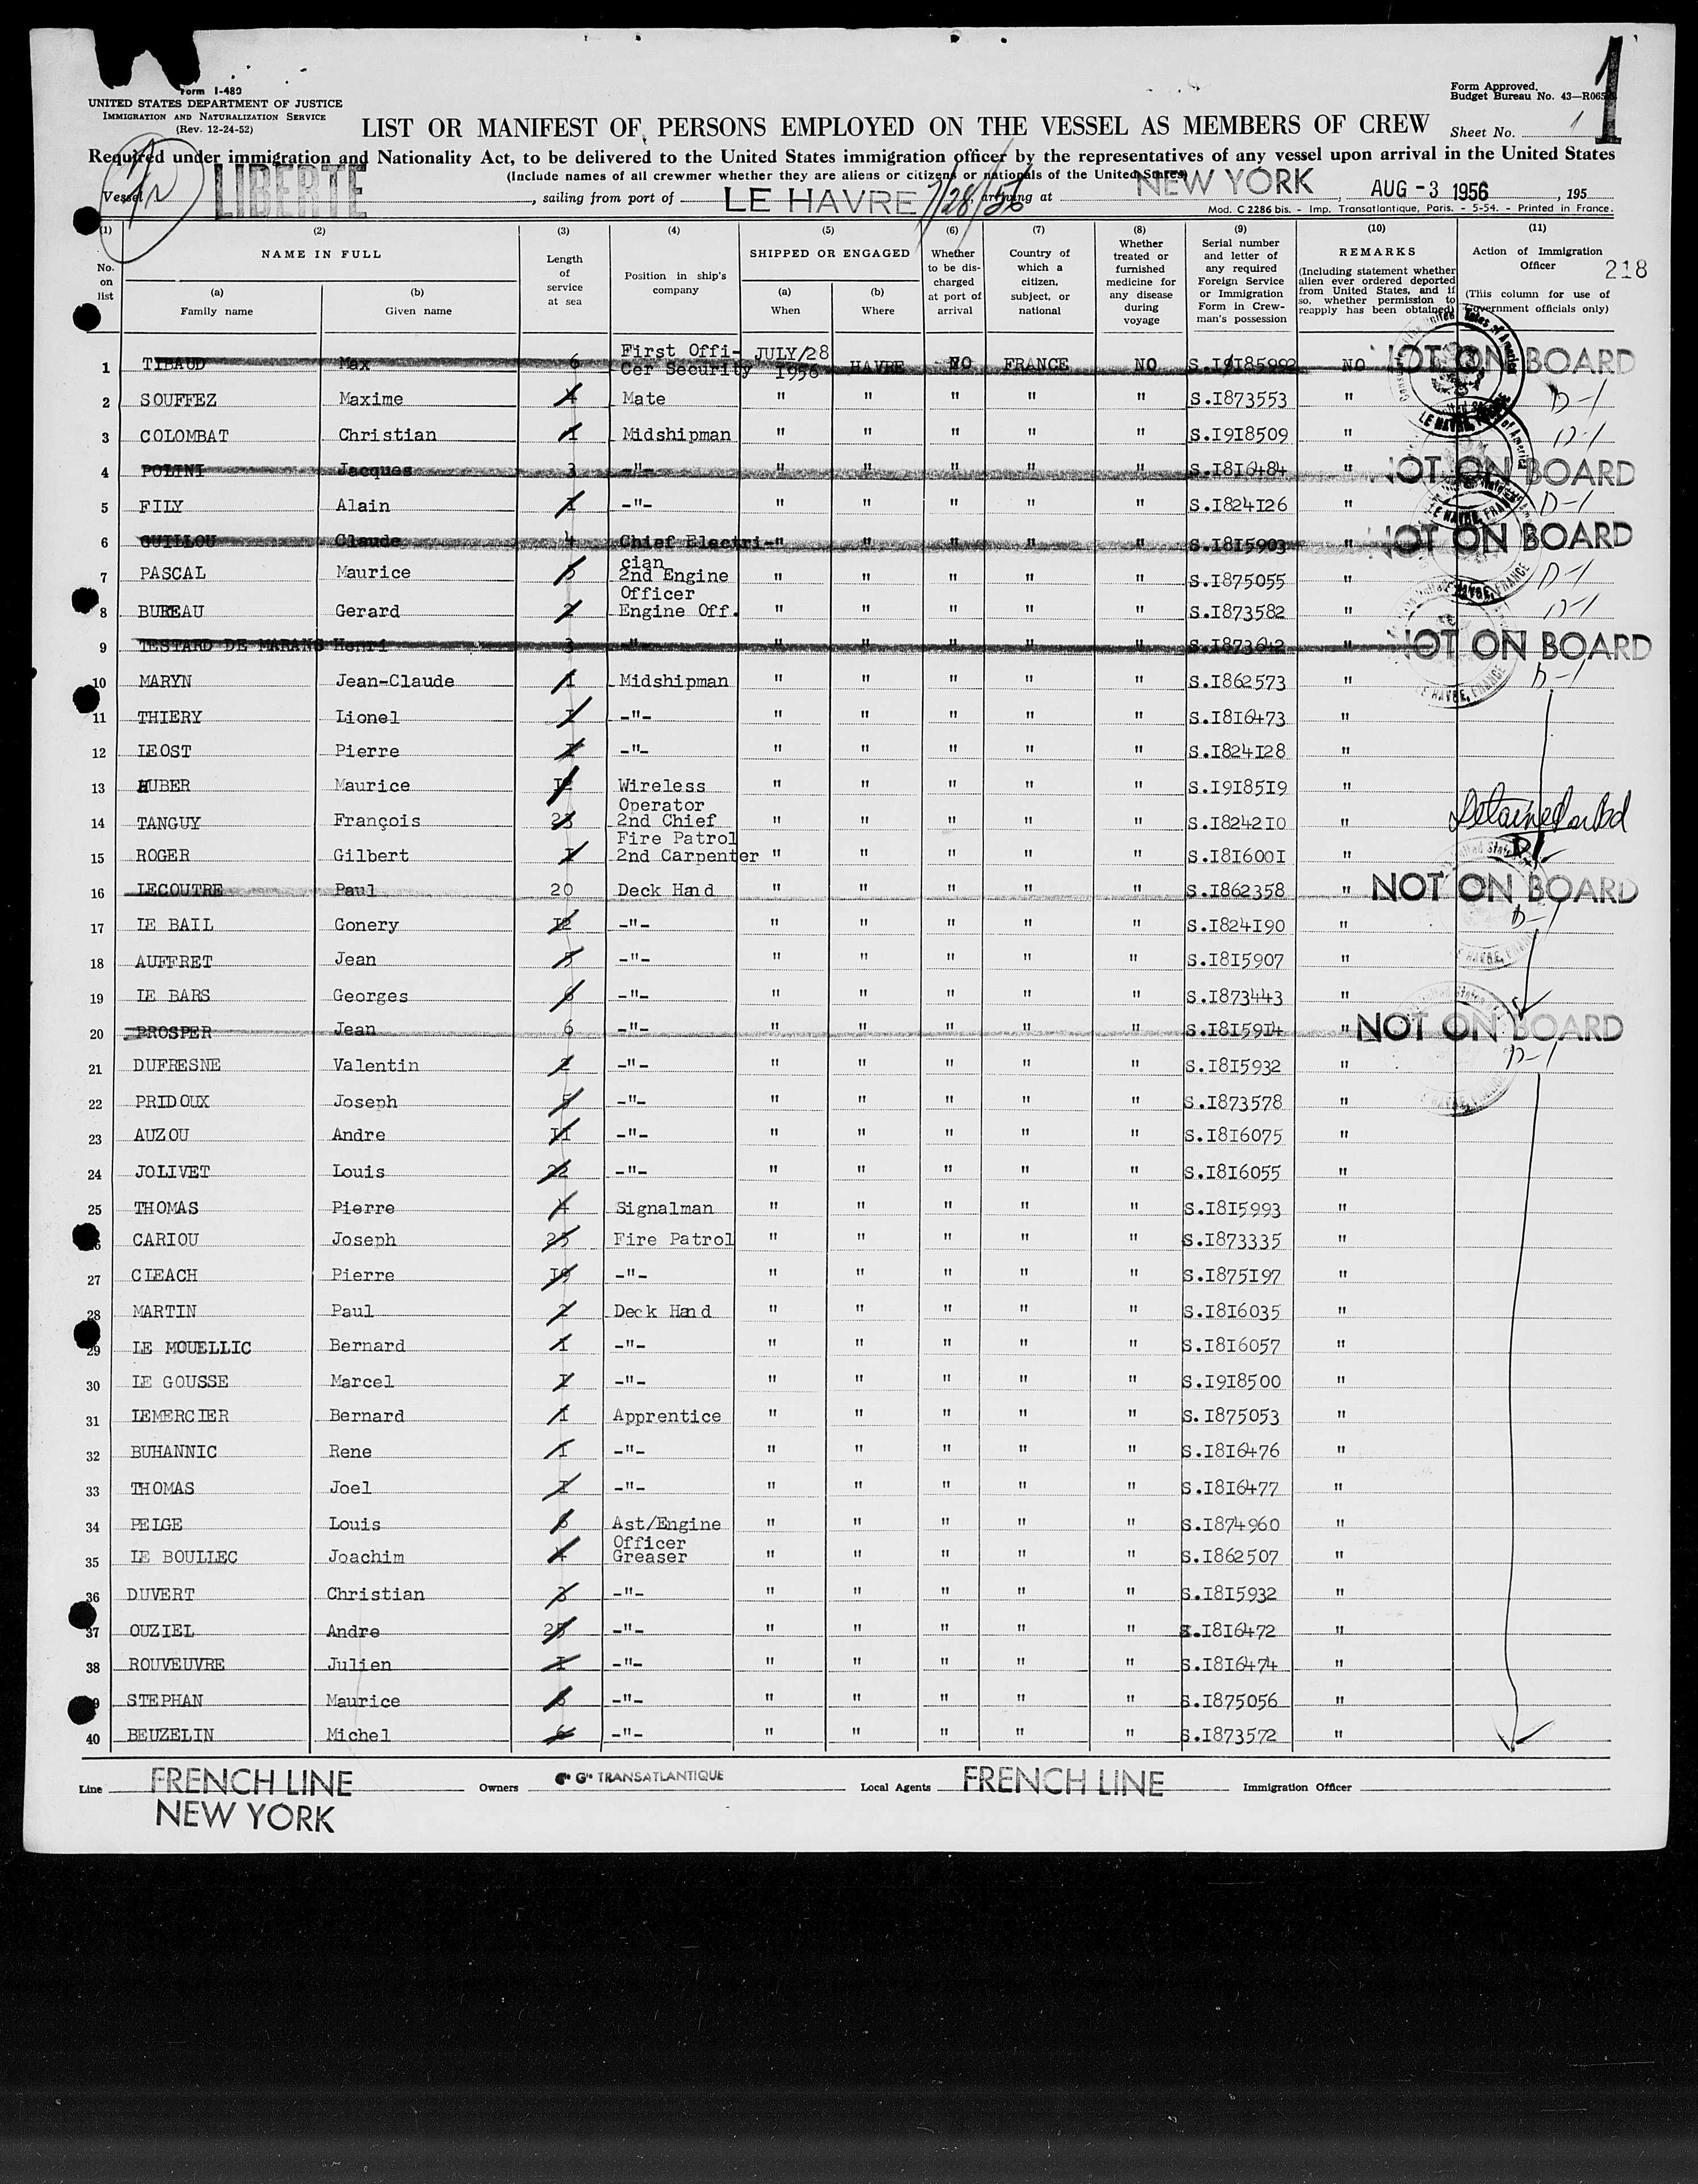 1
Form I-480
UNITED STATES DEPARTMENT OF JUSTICE
IMMIGRATION AND NATURALIZATION SERVICE
(Rev. 12-24-52)
Form Approved.
Budget Bureau No. 43—R065
LIST OR MANIFEST OF PERSONS EMPLOYED ON THE VESSEL AS MEMBERS OF CREW
Sheet No. 1
Required under immigration and Nationality Act, to be delivered to the United States immigration officer by the representatives of any vessel upon arrival in the United States
(Include names of all crewmer whether they are aliens or citizens or nationals of the United States)
Vessel LIBERTE, sailing from port of LE HAVRE 7/28/56, arriving at NEW YORK, AUG -3 1956, 195
Mod. C 2286 bis. - Imp. Transatlantique, Paris. - 5-54. - Printed in France.
(1) No. on list
(2) NAME IN FULL (a) Family name (b) Given name
(3) Length of service at sea
(4) Position in ship's company
(5) SHIPPED OR ENGAGED (a) When (b) Where
(6) Whether to be discharged at port of arrival
(7) Country of which a citizen, subject, or national
(8) Whether treated or furnished medicine for any disease during voyage
(9) Serial number and letter of any required Foreign Service or Immigration Form in Crewman's possession
(10) REMARKS (Including statement whether alien ever ordered deported from United States, and if so, whether permission to reapply has been obtained)
(11) Action of Immigration Officer (This column for use of Government officials only)
218
1 TIBAUD Max 6 First Offi-Cer Security JULY/28 1956 HAVRE NO FRANCE NO NO NOT ON BOARD
2 SOUFFEZ Maxime Mate " " " " " S.I873553 " D-1
3 COLOMBAT Christian 1 Midshipman " " " " " S.I918509 " D-1
4 POLINI Jacques 3 -"- " " " " " S.I816484 " NOT ON BOARD
5 FILY Alain 1 -"- " " " " " S.I824I26 " D-1
6 GUILLOU Claude 4 Chief Electri-cian " " " " " S.I8I5903 " NOT ON BOARD
7 PASCAL Maurice 5 2nd Engine Officer " " " " " S.I875055 " D-1
8 BUREAU Gerard 2 Engine Off. " " " " " S.I873582 " D-1
9 TESTARD DE MARANS Henri 3 -"- " " " " " S.I873642 " NOT ON BOARD
10 MARYN Jean-Claude 1 Midshipman " " " " " S.I862573 " D-1
11 THIERY Lionel I -"- " " " " " S.I8I6473 "
12 LEOST Pierre I -"- " " " " " S.I824I28 "
13 HUBER Maurice I2 Wireless Operator " " " " " S.I9I85I9 "
14 TANGUY François 23 2nd Chief Fire Patrol " " " " " S.I8242I0 " Detained on Bd
15 ROGER Gilbert I 2nd Carpenter " " " " " S.I8I600I " D1-
16 LECOUTRE Paul 20 Deck Hand " " " " " S.I862358 " NOT ON BOARD
17 LE BAIL Gonery I2 -"- " " " " " S.I824I90 " D-1
18 AUFFRET Jean -"- " " " " " S.I8I5907 "
19 LE BARS Georges 6 -"- " " " " " S.I873443 "
20 PROSPER Jean 6 -"- " " " " " S.I8I59I4 " NOT ON BOARD
21 DUFRESNE Valentin 2 -"- " " " " " S.I8I5932 " D-1
22 PRIDOUX Joseph 5 -"- " " " " " S.I873578 "
23 AUZOU Andre II -"- " " " " " S.I8I6075 "
24 JOLIVET Louis 22 -"- " " " " " S.I8I6055 "
25 THOMAS Pierre 4 Signalman " " " " " S.I8I5993 "
26 CARIOU Joseph 25 Fire Patrol " " " " " S.I873335 "
27 CLEACH Pierre I9 -"- " " " " " S.I875I97 "
28 MARTIN Paul 2 Deck Hand " " " " " S.I8I6035 "
29 LE MOUELLIC Bernard 1 -"- " " " " " S.I8I6057 "
30 LE GOUSSE Marcel I -"- " " " " " S.I9I8500 "
31 LEMERCIER Bernard 1 Apprentice " " " " " S.I875053 "
32 BUHANNIC Rene I -"- " " " " " S.I8I6476 "
33 THOMAS Joel I -"- " " " " " S.I8I6477 "
34 PEIGE Louis 6 Ast/Engine Officer " " " " " S.I874960 "
35 LE BOULLEC Joachim 4 Greaser " " " " " S.I862507 "
36 DUVERT Christian 3 -"- " " " " " S.I8I5932 "
37 OUZIEL Andre 25 -"- " " " " " S.I8I6472 "
38 ROUVEUVRE Julien I -"- " " " " " S.I8I6474 "
39 STEPHAN Maurice -"- " " " " " S.I875056 "
40 BEUZELIN Michel 6 -"- " " " " " S.I873572 "
Line FRENCH LINE NEW YORK Owners Cie Gle TRANSATLANTIQUE Local Agents FRENCH LINE Immigration Officer